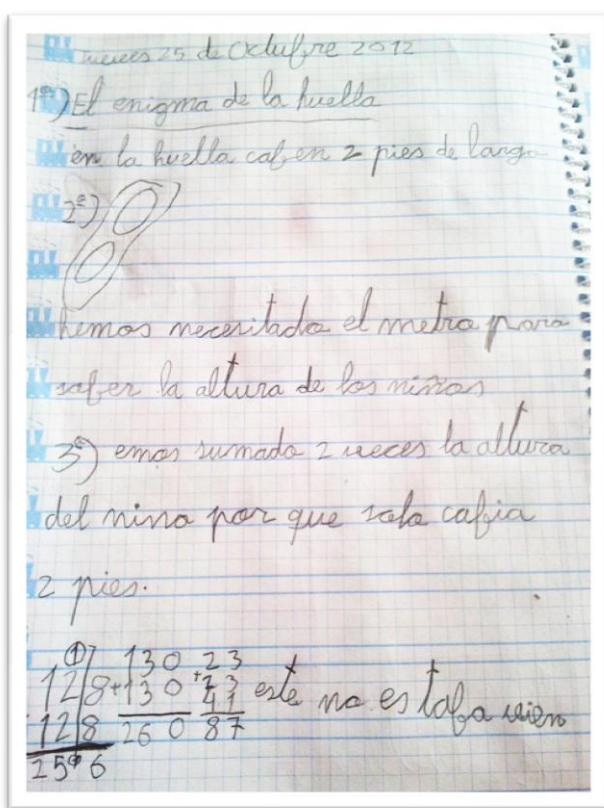 Jueves 25 de Octubre 2012
1º) El enigma de la huella
en la huella caben 2 pies de largo
2º)
hemos necesitado el metro para
saber la altura de los niños
3º) emos sumado 2 veces la altura
del niño por que solo cabia
2 pies.
① 130 23
128 +130 +23 este no es taba vien
41
128 260 87
256